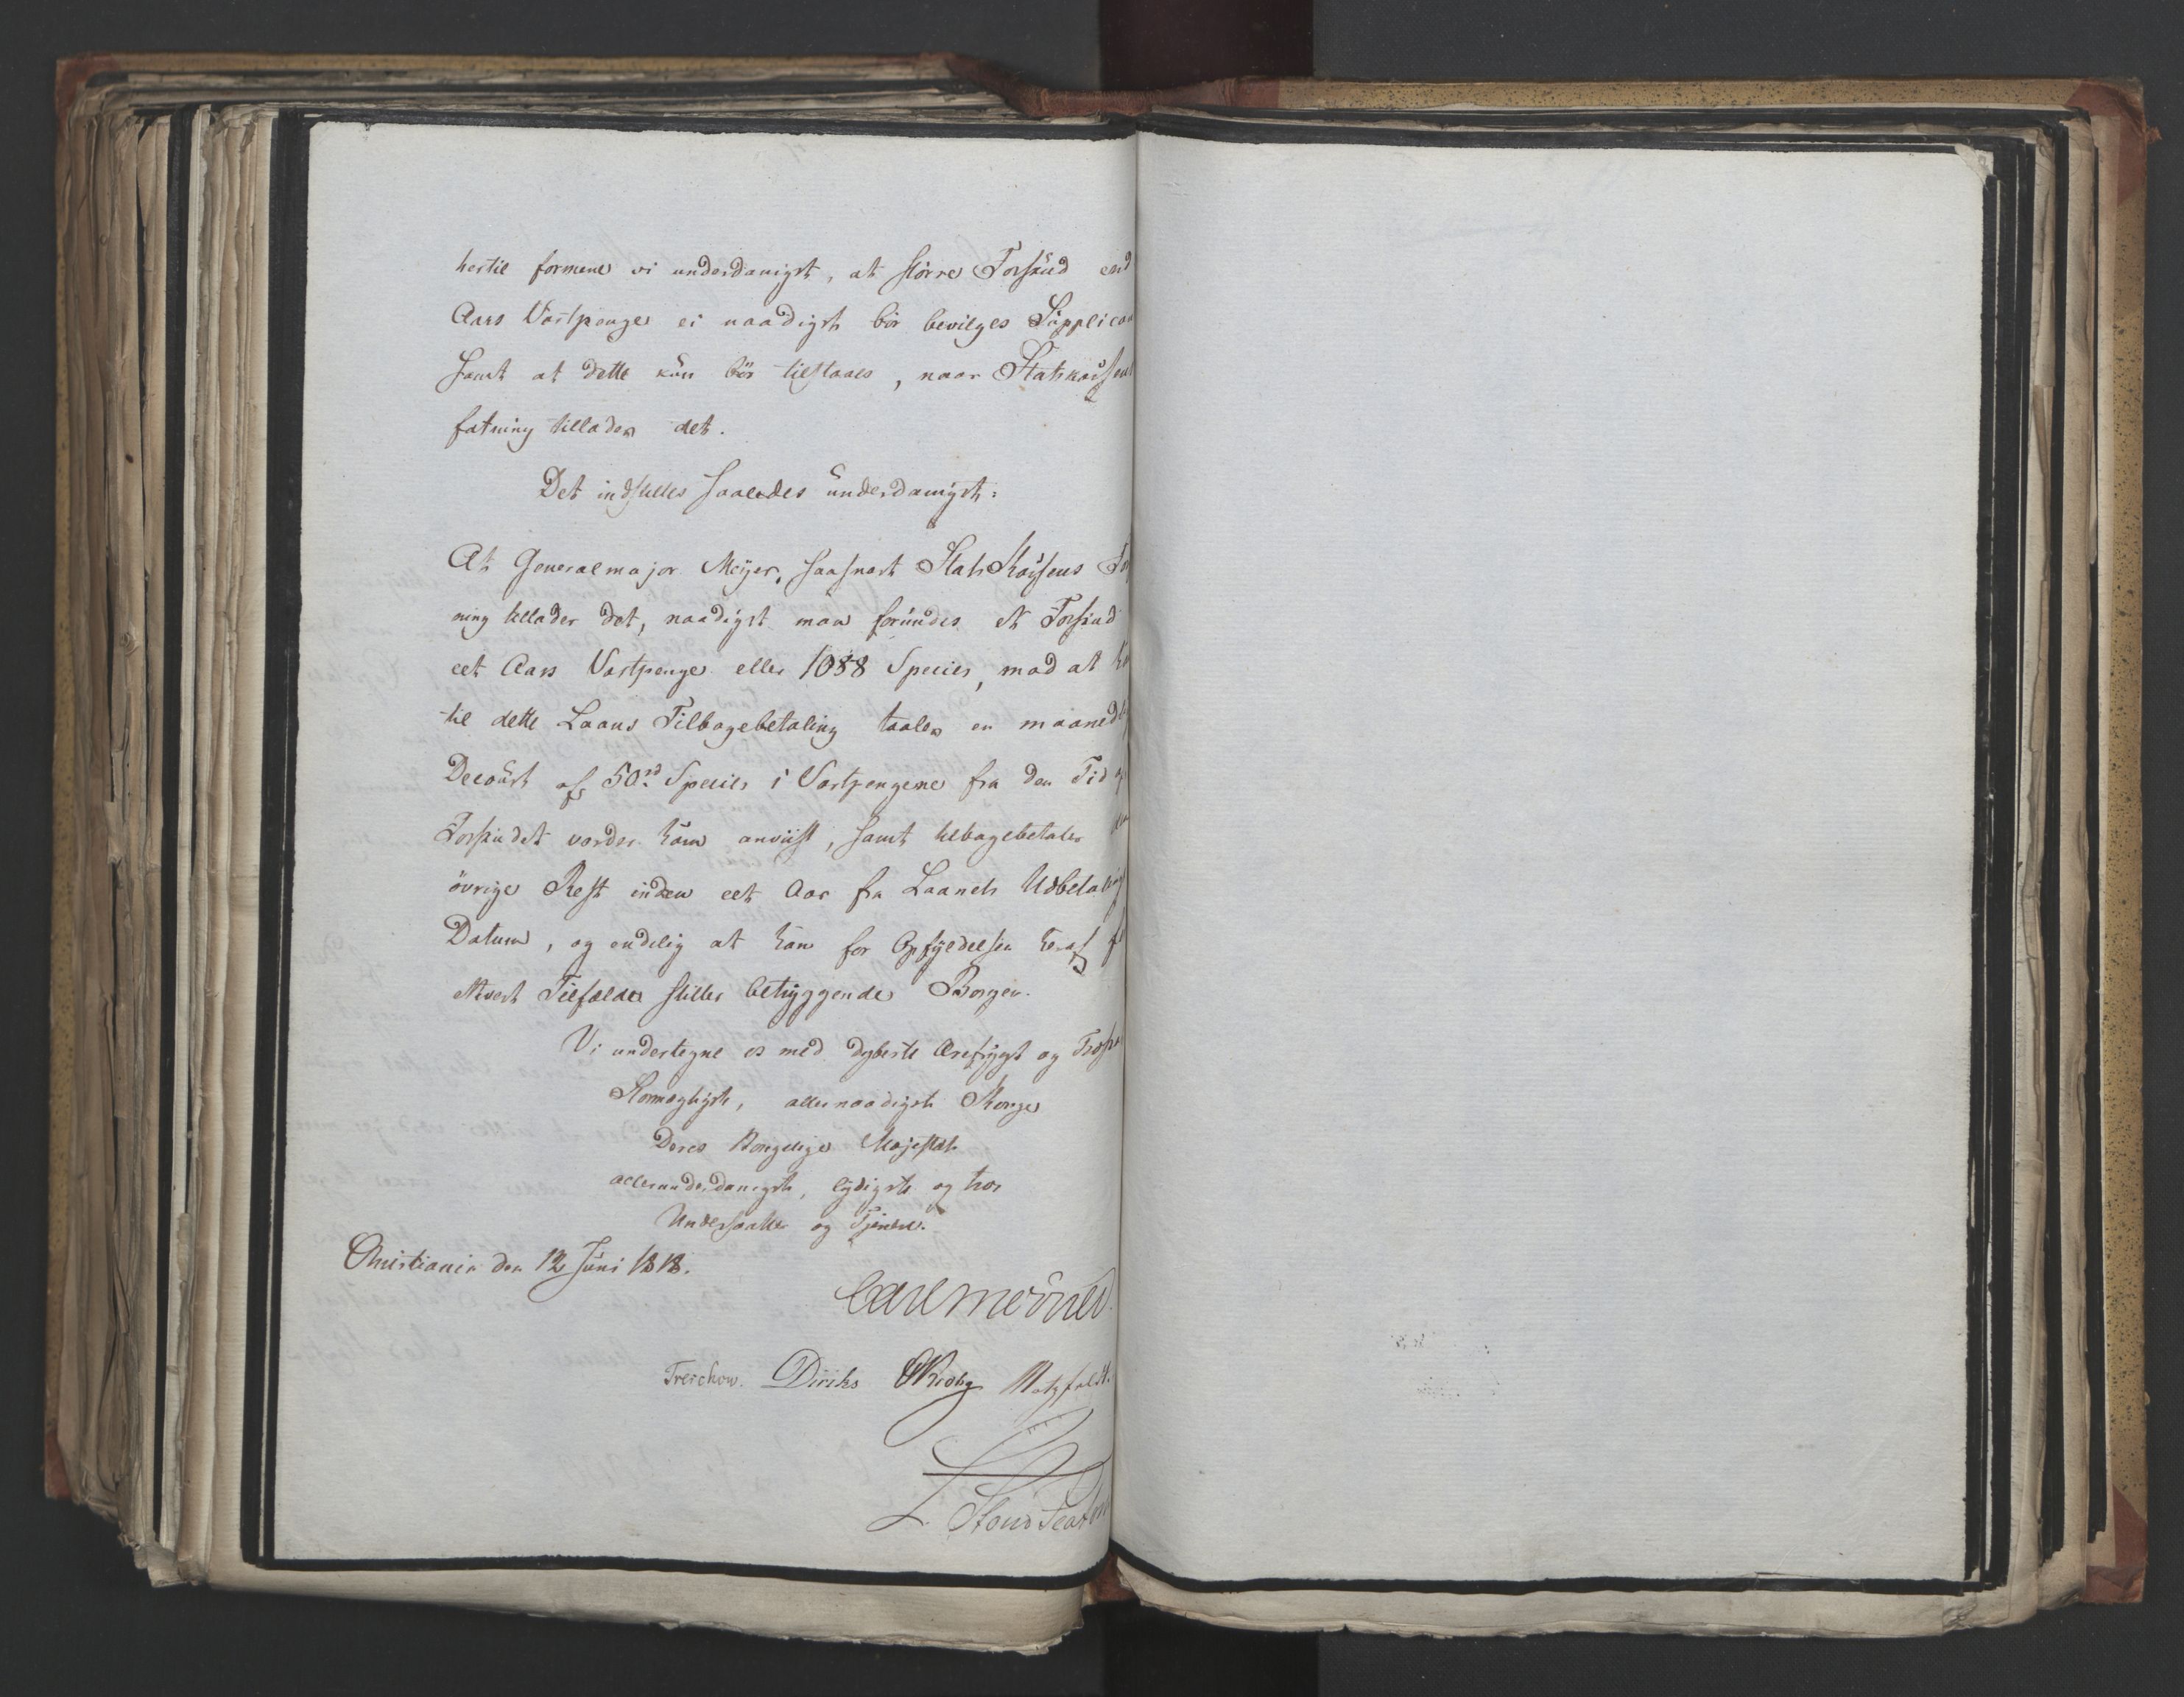 hertil formene vi underdanigst, at större Forskud end
Aars Vartpenge ei naadigst bör bevilges Supplican
samt at dette kun bör tilstaaes, naar Statskassens
fatning tillader det.
Det indstilles saaledes underdanigst:
At Generalmajor Meijer, saasnart Stats Kassens
ning tillader det, naadigst maa forundes et Forskud
eet Aars Vartpenge eller 1088 Species, mod at
til dette Laans Tilbagebetaling taaler en maanedl
Decourt af 50rd Species i Vartpengene fra den Tid
Forskudet vorder ham anviist, samt tilbagebetaler
övrige Rest inden eet Aar fra Laanets Udbetalings
Datum, og endelig at han for Opfyldelsen heraf
ethvert Tilfælde stiller betryggende Borgen.
Vi undertegne os med dybeste Ærefrygt og Troska
Stormægtigste, allernaadigste Konge
Deres Kongelige Majestæts
allerunderdanigste, lydigste og troe
Undersaatter og Tjenere.
Christiania den 12 Juni 1818.
Carl Mörner.
Treschow. Diriks Krohg Motzfeldt.